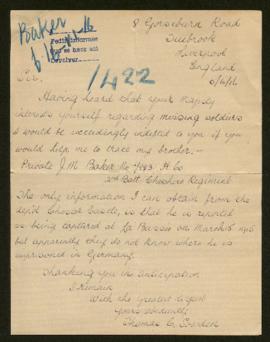 Baker
1422
8 Gorseburn Road
Tuebrook
Liverpool
England
Sir.
Having heard that your Majesty
interests yourself regarding missing soldiers
I would be exceedingly indebted to you if you
would help me to trace my brother:-
Private J.M. Baker No H Co
2nd Batt. Cheshire Regiment
The only information I can obtain from the
depôt Chester Castle, is that he is reported
as being captured at La Bassée on March
but apparently they do not know where he is
imprisoned in Germany.
Thanking you in anticipation
I Remain
With the Greatest
Yours obediently
Thomas C.